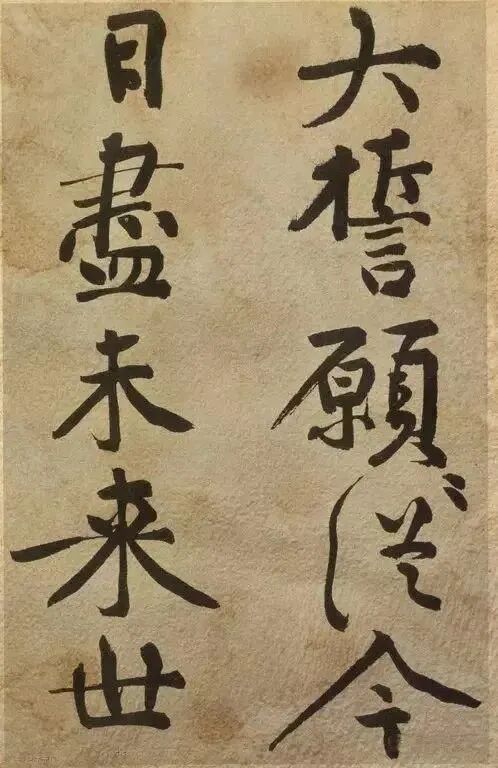 大誓願從今
日盡未來世